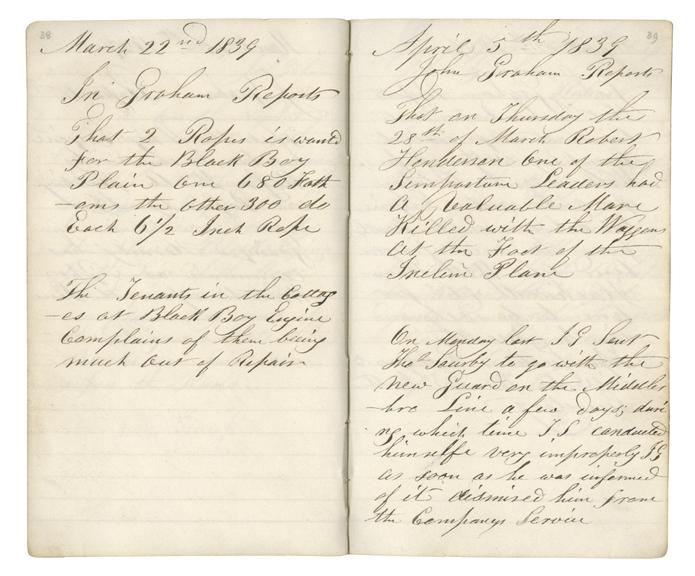 38
March 22nd 1839
Jn Graham Reports
That 2 Ropes is wanted
for the Black Boy
Plain one 680 Fath
-oms the other 300 do
Each 6 1/2 Inch Rope
The Tenants in the Cottag
-es at Black Boy Engine
Complains of them being
much out of Repair
39
April 5th 1839
John Graham Reports
That on Thursday the
28th of March Robert
Henderson one of the
Leaders had
A Valuable Mare
Killed with the Waggons
at the Foot of the
Incline Plane
On Monday last JG Sent
Thos Sowrby to go with the
new Guard on the Middels
-bro Line a few days; duri
ng which time TS conducted
himselfe very improperly JG
as soon as he was informed
of it dismised him from
the Companys Service